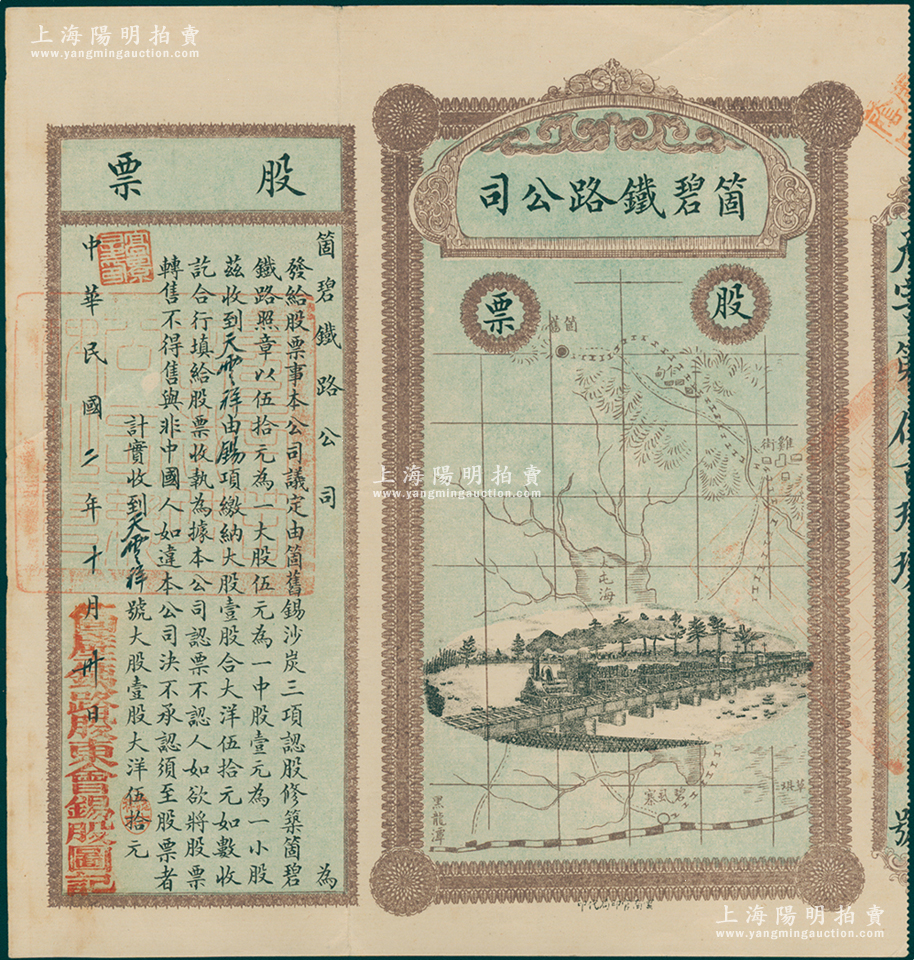 上海陽明拍賣
www.yangmingauction.com
箇碧鐵路公司
股票
箇舊
雞街
大屯海
碧虱寨
草垻
黑龍潭
股票
箇碧鐵路公司 為
發給股票事本公司議定由箇舊錫沙炭三項認股修築箇碧
鐵路照章以伍拾元為一大股伍元為一中股壹元為一小股
茲收到天雲祥由錫項繳納大股壹股合大洋伍拾元如數收
訖合行填給股票收執為據本公司認票不認人如欲將股票
轉售不得售與非中國人如違本公司決不承認須至股票者
計實收到天雲祥號大股壹股大洋伍拾元
中華民國二年十月卅日
箇碧鐵路股東會錫股圖記
上海陽明拍賣
www.yangmingauction.com
號
上海陽明拍賣
www.yangmingauction.com